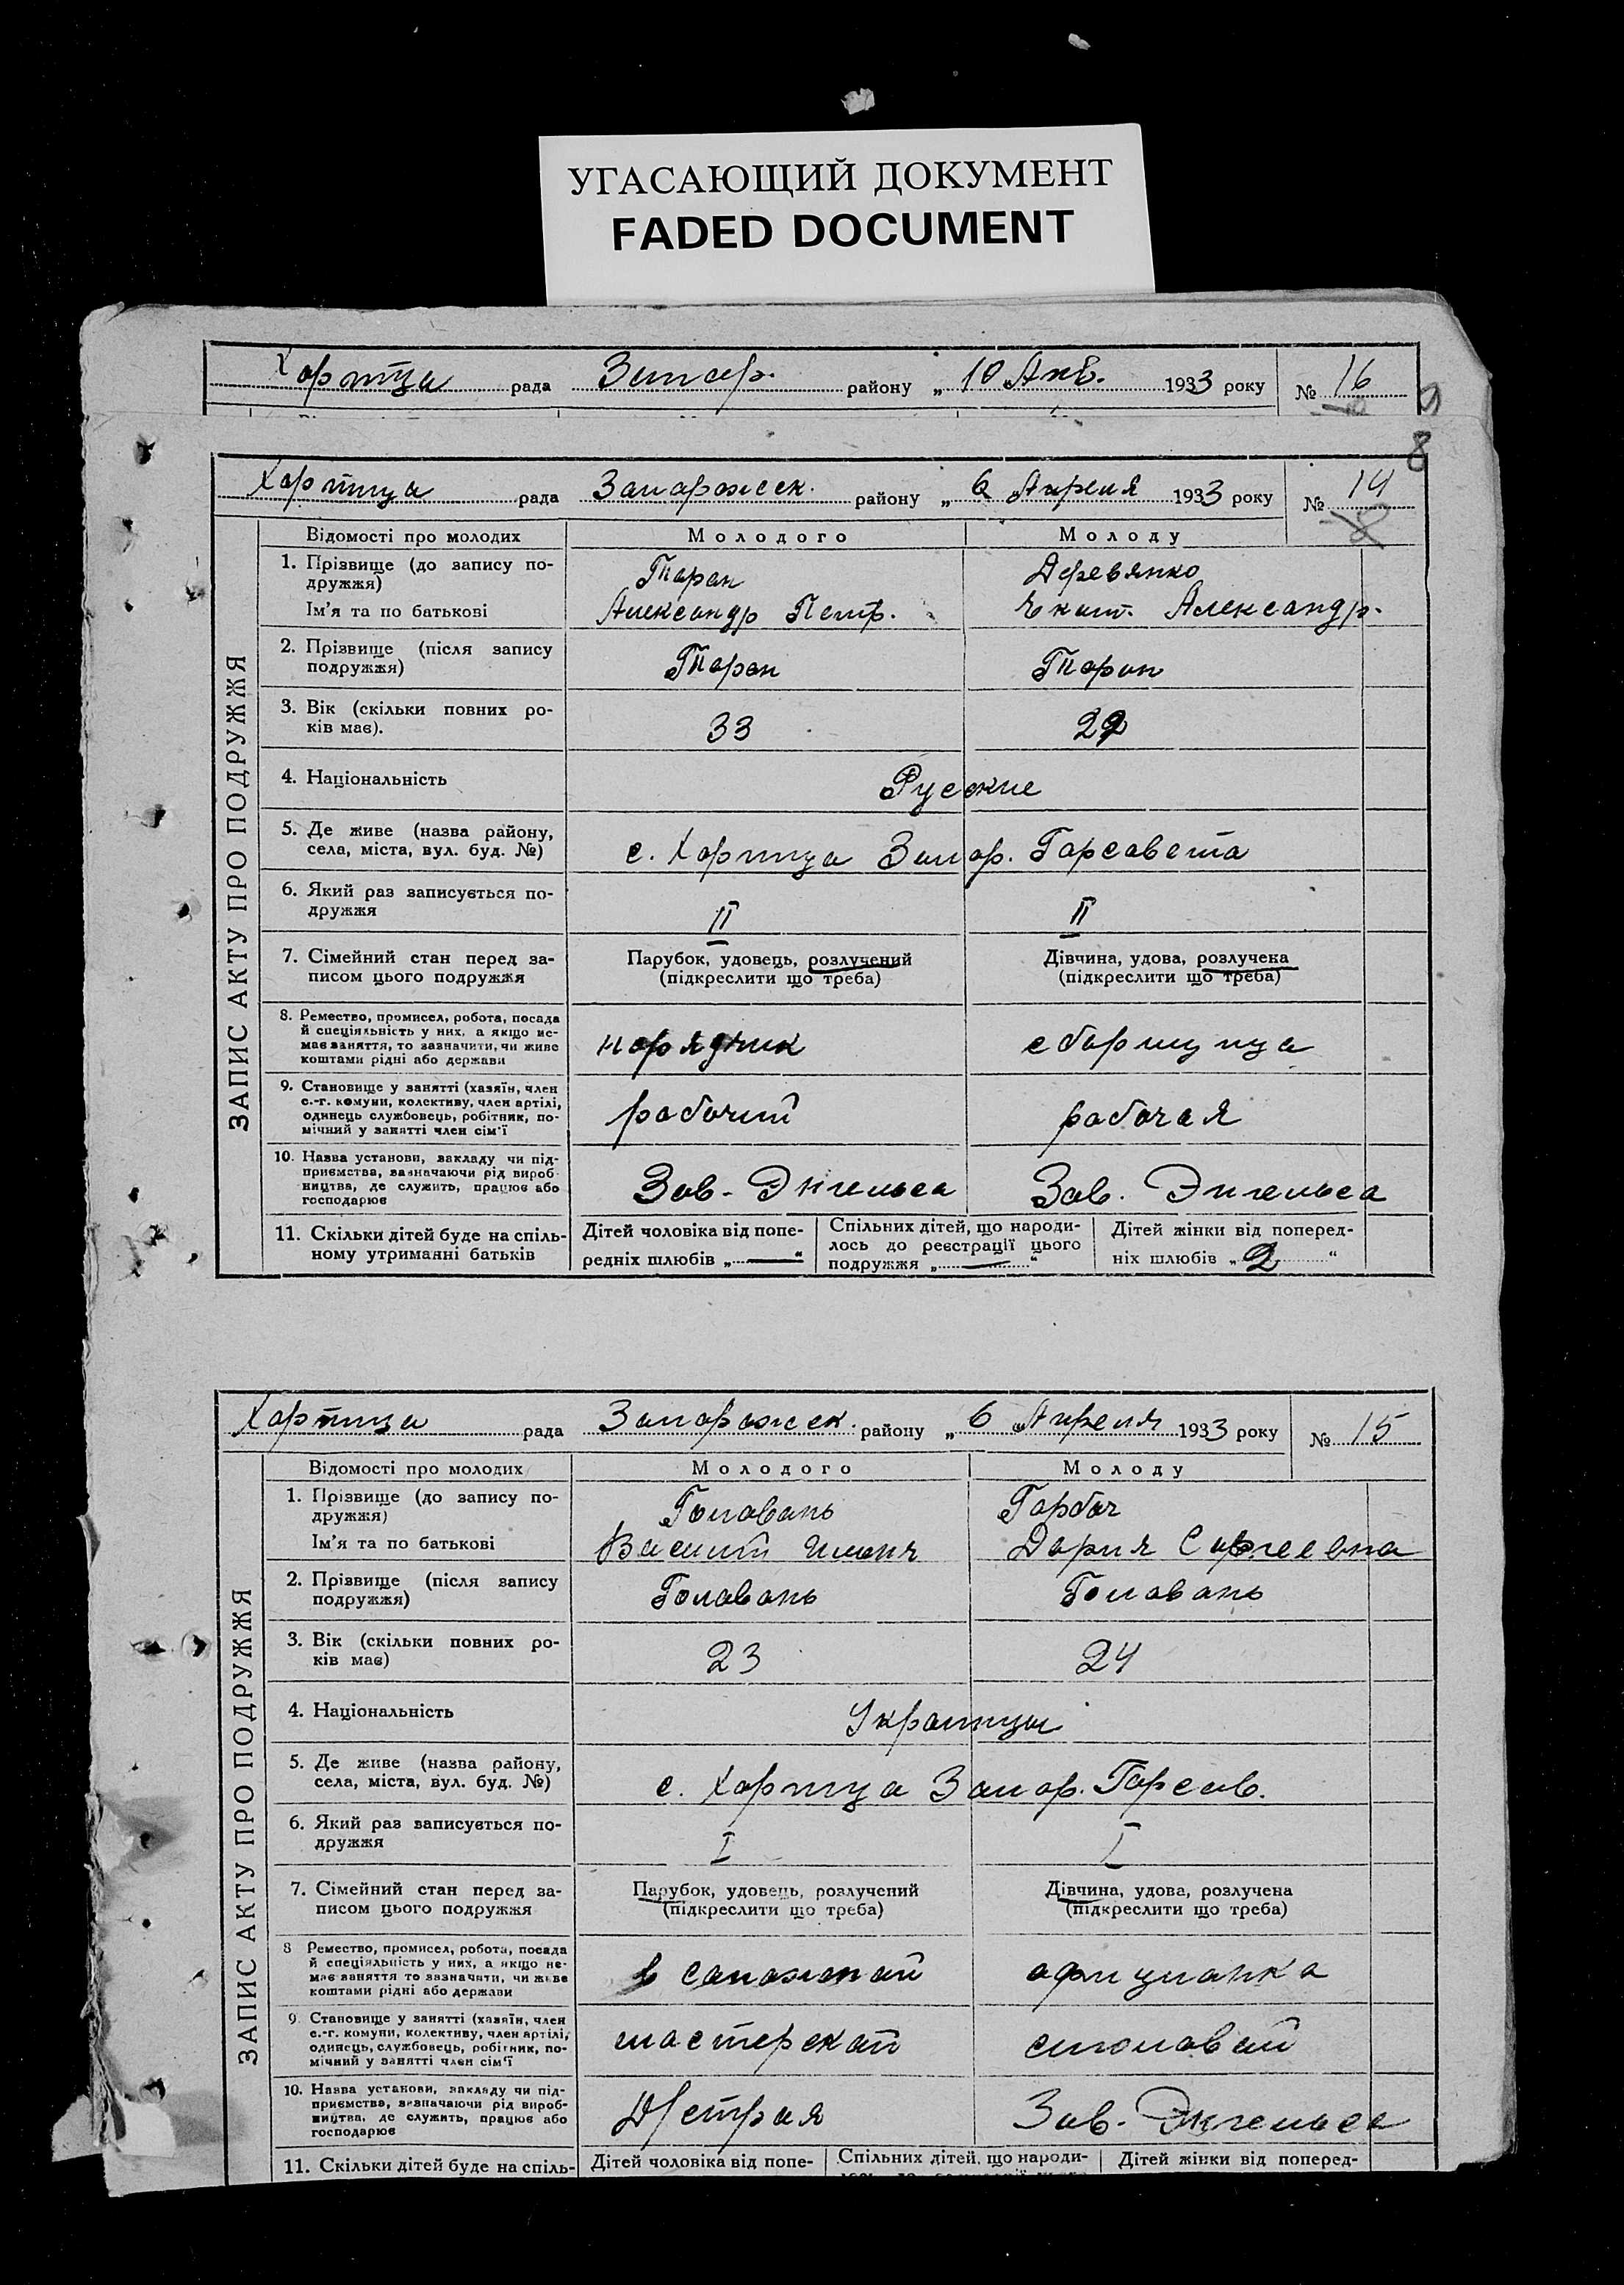 УГАСАЮЩИЙ ДОКУМЕНТ
FADED DOCUMENT
Хортица рада Запор. району „ 10 Апр. 1933 року № 16
9
8
Хортица рада Запорожск. району „ 6 „ Апреля 1933 року № 14
Відомості про молодих Молодого Молоду
1. Прізвище (до запису по-
дружжя) Таран Деревянко
Ім'я та по батькові Александр Петр. Екат. Александр.
2. Прізвище (після запису
подружжя) Таран Таран
3. Вік (скільки повних ро-
ків має). 33 22
4. Національність Русские
5. Де живе (назва району,
села, міста, вул. буд. №) с. Хортица Запор. Горсовета
6. Який раз записується по-
дружжя II II
7. Сімейний стан перед за-
писом цього подружжя
Парубок, удовець, розлучений
(підкреслити що треба)
Дівчина, удова, розлучена
(підкреслити що треба)
8. Ремество, промисел, робота, посада
й спеціяльність у них, а якщо не-
має заняття, то зазначити, чи живе
коштами рідні або держави
нарядчик сборщица
9. Становище у занятті (хазяїн, член
с.-г. комуни, колективу, член артілі,
одинець службовець, робітник, по-
мічний у занятті член сім'ї
рабочий рабочая
10. Назва установи, закладу чи під-
приємства, зазначаючи рід вироб-
ництва, де служить, працює або
господарює
Зав. Энгельса Зав. Энгельса
11. Скільки дітей буде на спіль-
ному утриманні батьків
Дітей чоловіка від попе-
редніх шлюбів „ — “
Спільних дітей, що народи-
лось до реєстрації цього
подружжя „ — “
Дітей жінки від поперед-
ніх шлюбів „ 2 “
ЗАПИС АКТУ ПРО ПОДРУЖЖЯ
Хортица рада Запорожск. району „ 6 „ Апреля 1933 року № 15
Відомості про молодих Молодого Молоду
1. Прізвище (до запису по-
дружжя) Головань Горбач
Ім'я та по батькові Василий Дария Сергеевна
2. Прізвище (після запису
подружжя) Головань Головань
3. Вік (скільки повних ро-
ків має) 23 24
4. Національність Украинцы
5. Де живе (назва району,
села, міста, вул. буд. №) с. Хортица Запор. Горсов.
6. Який раз записується по-
дружжя I I
7. Сімейний стан перед за-
писом цього подружжя
Парубок, удовець, розлучений
(підкреслити що треба)
Дівчина, удова, розлучена
(підкреслити що треба)
8 Ремество, промисел, робота, посада
й спеціяльність у них, а якщо не-
має заняття то зазначити, чи живе
коштами рідні або держави
в сапожной официанка
9 Становище у занятті (хазяїн, член
с.-г. комуни, колективу, член артілі,
одинець, службовець, робітник, по-
мічний у занятті член сім'ї
мастерской столовай
10. Назва установи, закладу чи під-
приємства, зазначаючи рід вироб-
ництва, де служить, працює або
господарює
Д/страя Зав. Энгельса
11. Скільки дітей буде на спіль-
Дітей чоловіка від попе-
Спільних дітей, що народи-
Дітей жінки від поперед-
ЗАПИС АКТУ ПРО ПОДРУЖЖЯ